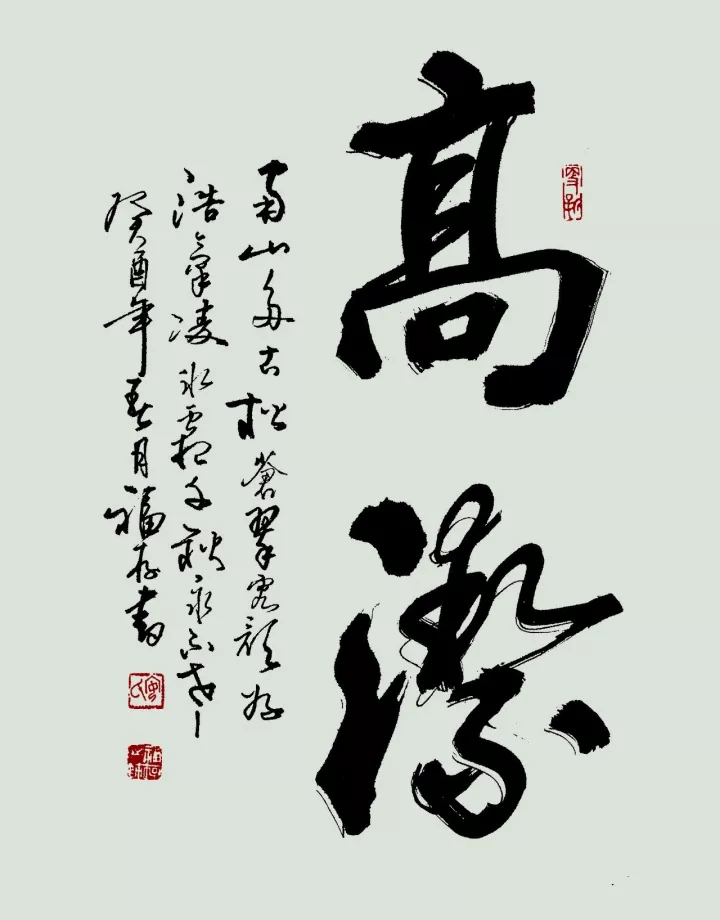 高潔
南山多古松蒼翠容顏好
浩氣凌冰霜千秋永不老
癸酉年春月福存書